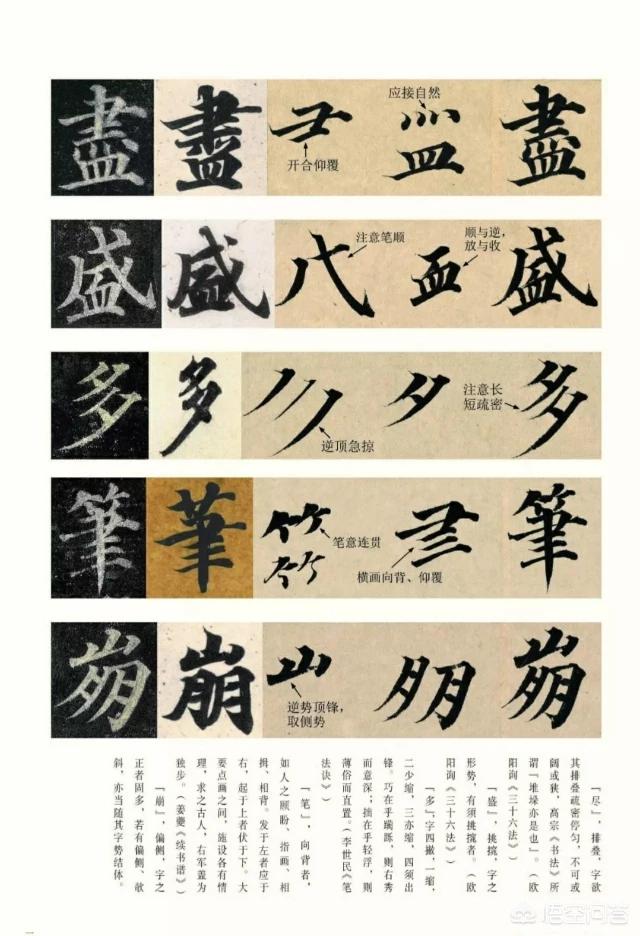 盡 盡 应接自然 开合仰覆 盡
盛 盛 注意笔顺 顺与逆,
放与收 盛
多 多 逆顶急掠 夕 注意长
短疏密 多
筆 筆 笔意连贯 横画向背、仰覆 筆
崩 崩 山 逆势顶锋,
取侧势 崩
「尽」,排叠,字欲
其排叠疏密停匀,不可或
阔或狭,高宗《书法》所
谓“堆垛亦是也”。(欧
阳询《三十六法》)
「盛」,挑㧐,字之
形势,有须挑㧐者。(欧
阳询《三十六法》)
「多」,字四撇,一缩,
二少缩,三亦缩,四须出
锋。巧在乎躏跞,则右秀
而意深;拙在乎轻浮,则
薄俗而直置。(李世民《笔
法诀》)
「笔」,向背者,
如人之顾盼、指画、相
揖、相背。发于左者应于
右,起于上者伏于下。大
要点画之间,施设各有情
理,求之古人,右军盖为
独步。(姜夔《续书谱》)
「崩」,偏侧,字之
正者固多,若有偏侧、欹
斜,亦当随其字势结体。
悟空问答